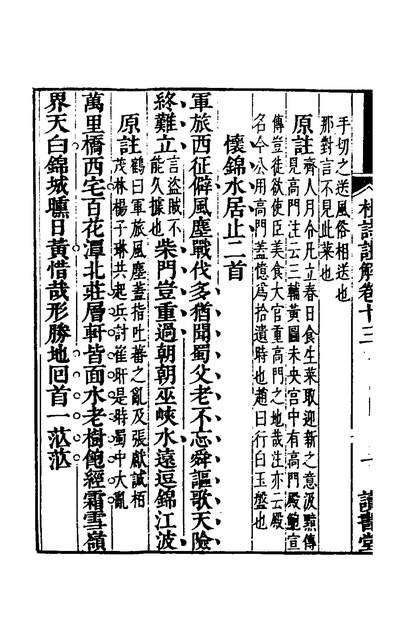 杜詩詳解卷十三
讀書堂
手切之送風俗相送也
那對言不見此菜也
原註齊人月令凡立春日食生菜取迎新之意汲黯傳
見高門注云三輔黃圖未央宮中有高門殿鮑宣
傳豈徒欲使臣美食大官重高門之地哉注亦云殿
名今公用高門蓋憶為拾遺時也趙曰行白玉盤也
懷錦水居止二首
軍旅西征僻風塵戰伐多猶聞蜀父老不忘舜謳歌天險
終難立言盜賊不能久據也柴門豈重過朝朝巫峽水遠逗錦江波
原註鶴曰軍旅風塵蓋指吐蕃之亂及張獻誠栢
茂林楊子琳共起兵討崔旰是時蜀中大亂
萬里橋西宅百花潭北莊層軒皆面水老樹飽經霜雪嶺
界天白錦城曛日黃惜哉形勝地回首一茫茫